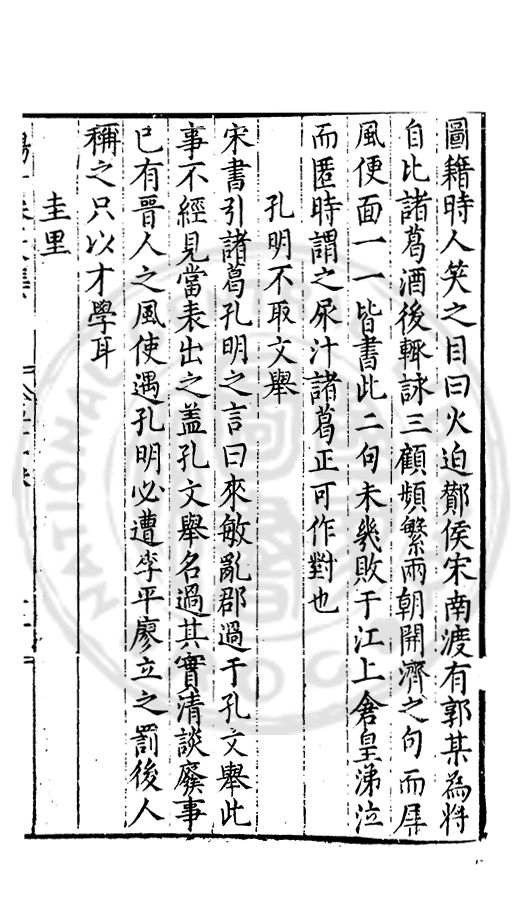 圖籍時人笑之目曰火迫酇侯宋南渡有郭某為將
自比諸葛酒後輒詠三顧頻繁兩朝開濟之句而屏
風便面一一皆書此二句未幾敗于江上倉皇涕泣
而匿時謂之尿汁諸葛正可作對也
孔明不取文舉
宋書引諸葛孔明之言曰來敏亂郡過于孔文舉此
事不經見當表出之盖孔文舉名過其實清談廢事
已有晉人之風使遇孔明必遭李平廖立之罰後人
稱之只以才學耳
圭里